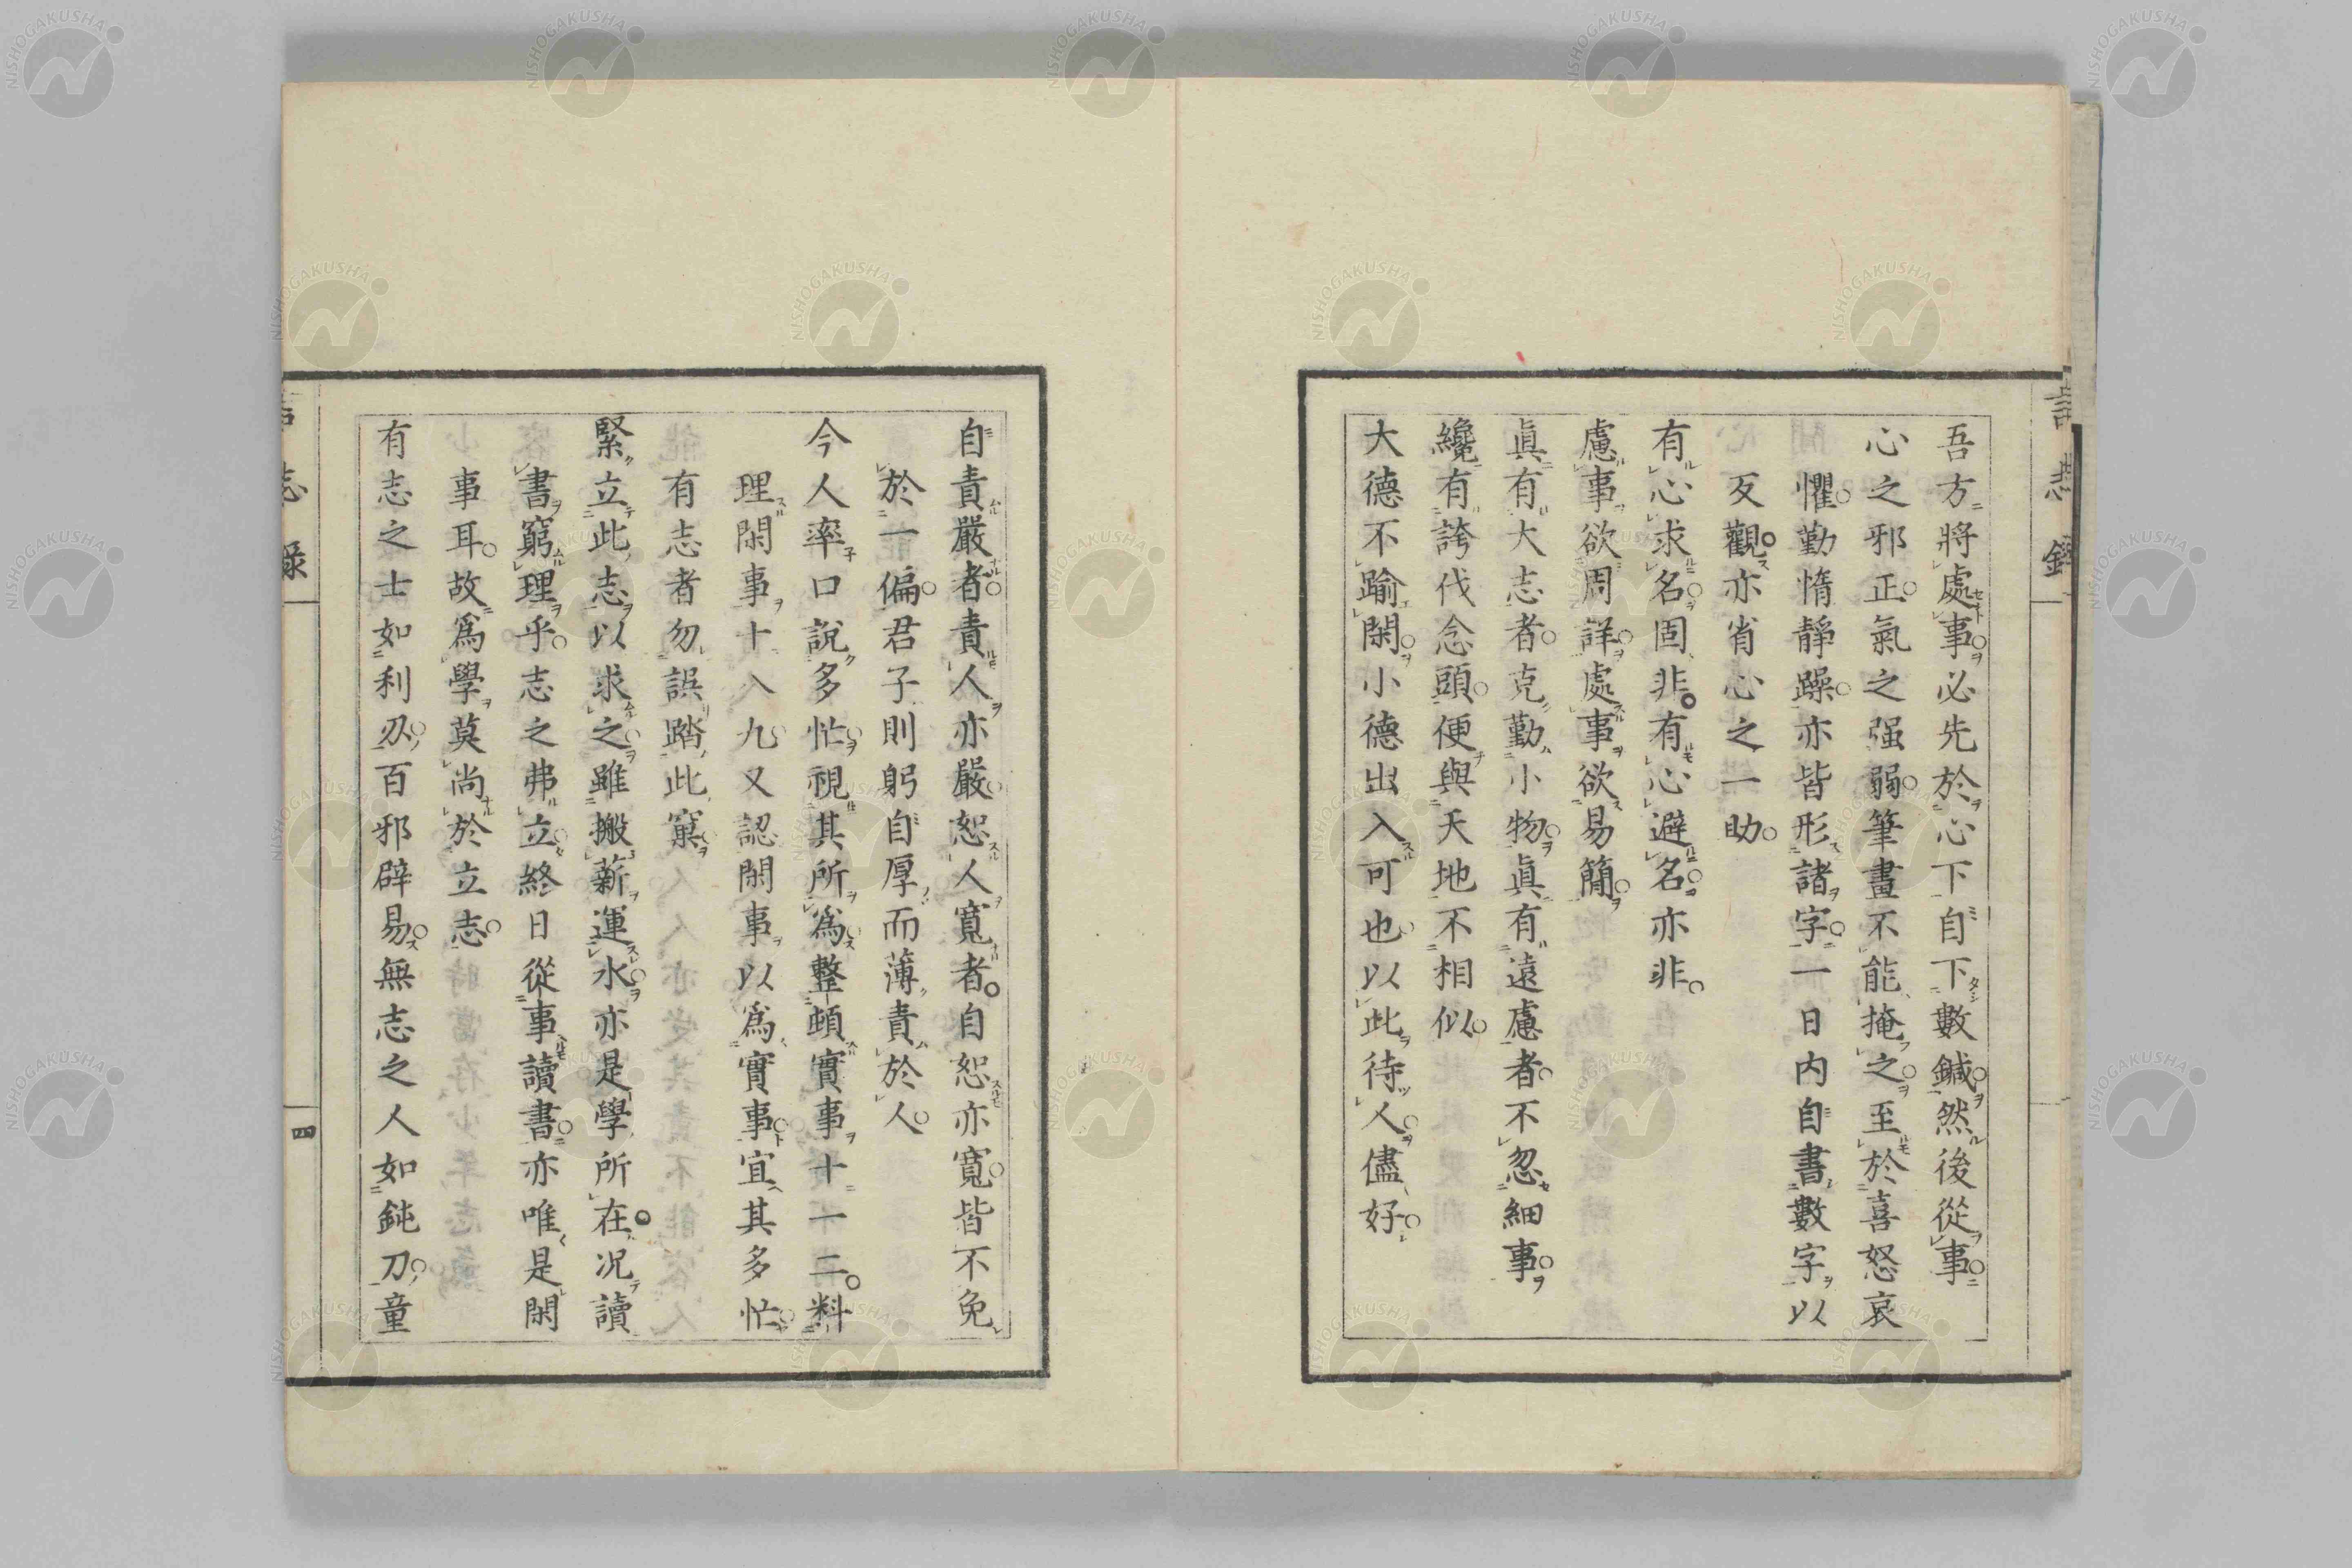 吾方將處事必先於心下自下數鍼然後從事
心之邪正氣之强弱筆畫不能掩之至於喜怒哀
懼勤惰靜躁亦皆形諸字一日内自書數字以
反觀亦省心之一助
有心求名固非有心避名亦非
慮事欲周詳處事欲易簡
眞有大志者克勤小物眞有遠慮者不忽細事
纔有誇伐念頭便與天地不相似
大德不踰閑小德出入可也以此待人儘好
自責嚴者責人亦嚴恕人寬者自恕亦寬皆不免
於一偏君子則躬自厚而薄責於人
今人率口說多忙視其所爲整頓實事十一二料
理閑事十八九又認閑事以爲實事宜其多忙
有志者勿誤踏此窠
緊立此志以求之雖搬薪運水亦是學所在况讀
書窮理乎志之弗立終日從事讀書亦唯是閑
事耳故爲學莫尚於立志
有志之士如利刃百邪辟易無志之人如鈍刀童
志錄
四
NISHOGAKUSHA